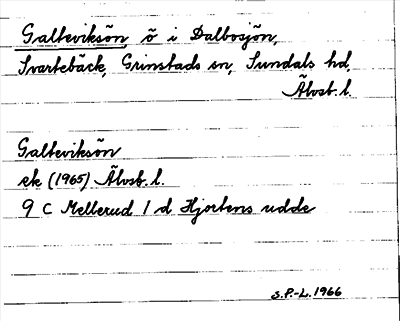 Galteviksön, ö i Dalbosjön,
Svartebäck, Grinstads sn, Sundals hd,
Älvsb. l.
Galteviksön
ek (1965) Älvsb. l.
9 C Mellerud 1 d Hjortens udde
S.P.-L. 1966